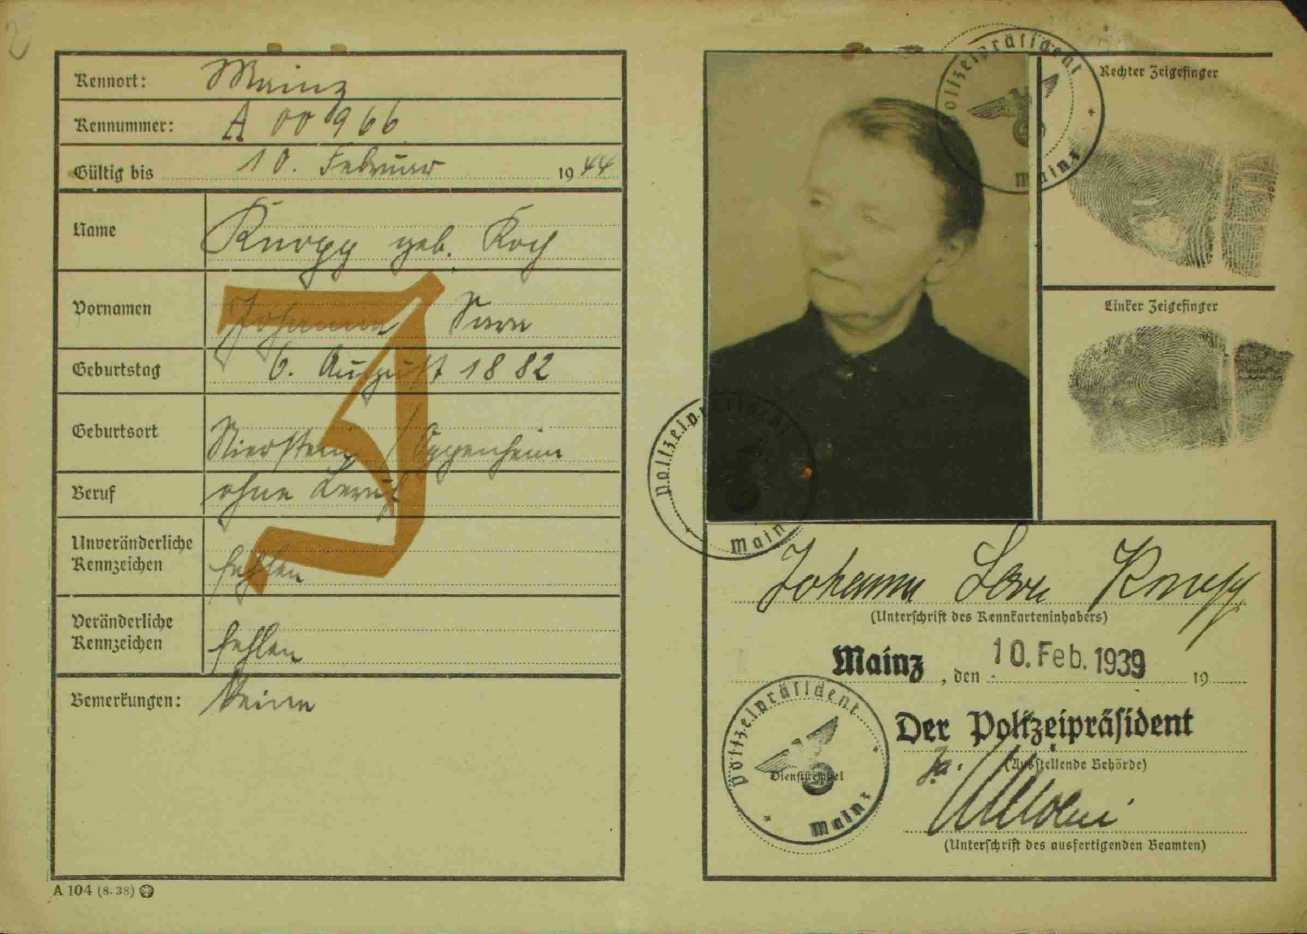 2
Kennort: Mainz
Kennummer: A 00966
Gültig bis 10. Februar 1944
Name Knopp geb. Koch
Vornamen Johanna Sara
Geburtstag 6. August 1882
Geburtsort Nierstein / Oppenheim
Beruf ohne Beruf
Unveränderliche
Kennzeichen fehlen
Veränderliche
Kennzeichen fehlen
Bemerkungen: Keine
J
A 104 (8. 38)
Polizeipräsident
Mainz
Rechter Zeigefinger
Linker Zeigefinger
Polizeipräsident
Mainz
Johanna Sara Knopp
(Unterschrift des Kennkarteninhabers)
Mainz, den 10. Feb. 1939 19
Polizeipräsident
Dienststempel
Mainz
Der Polizeipräsident
(Ausstellende Behörde)
(Unterschrift des ausfertigenden Beamten)